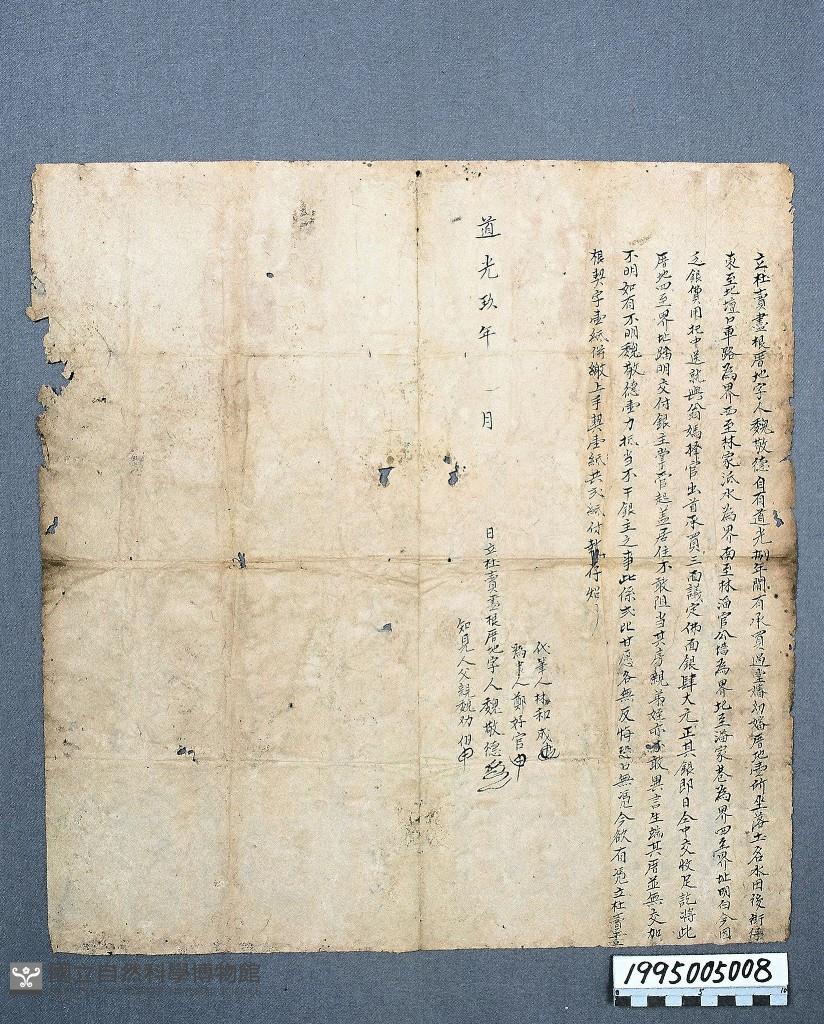 立杜賣盡根厝地字人魏敬德自有道光捌年間有承買過堂嬸幼婶厝地壹所坐落土名水田後街
東至北壇口車路為界西至林家泜水為界南至林溜官公墻為界北至潘家巷為界四至界址明白今因
乏銀費用托中送就與翁媽擇官出首承買三面議定佛面銀肆大元正其銀即日仝中交收足訖將此
厝地四至界址踏明交付銀主掌管起盖居住不敢阻当其房親弟姪亦不敢異言生端其厝並無交加
不明如有不明魏敬德壹力抵当不干銀主之事此係式比甘愿各無反悔恐口無憑今欲有憑立杜賣盡
根契字壹紙併繳上手契壹紙共弍紙付執仔炤
代筆人林和成
為中人鄭好官
道光玖年 一月 日立杜賣盡根厝地字人魏敬德
知見人父親魏幼
國立自然科學博物館
1995005008